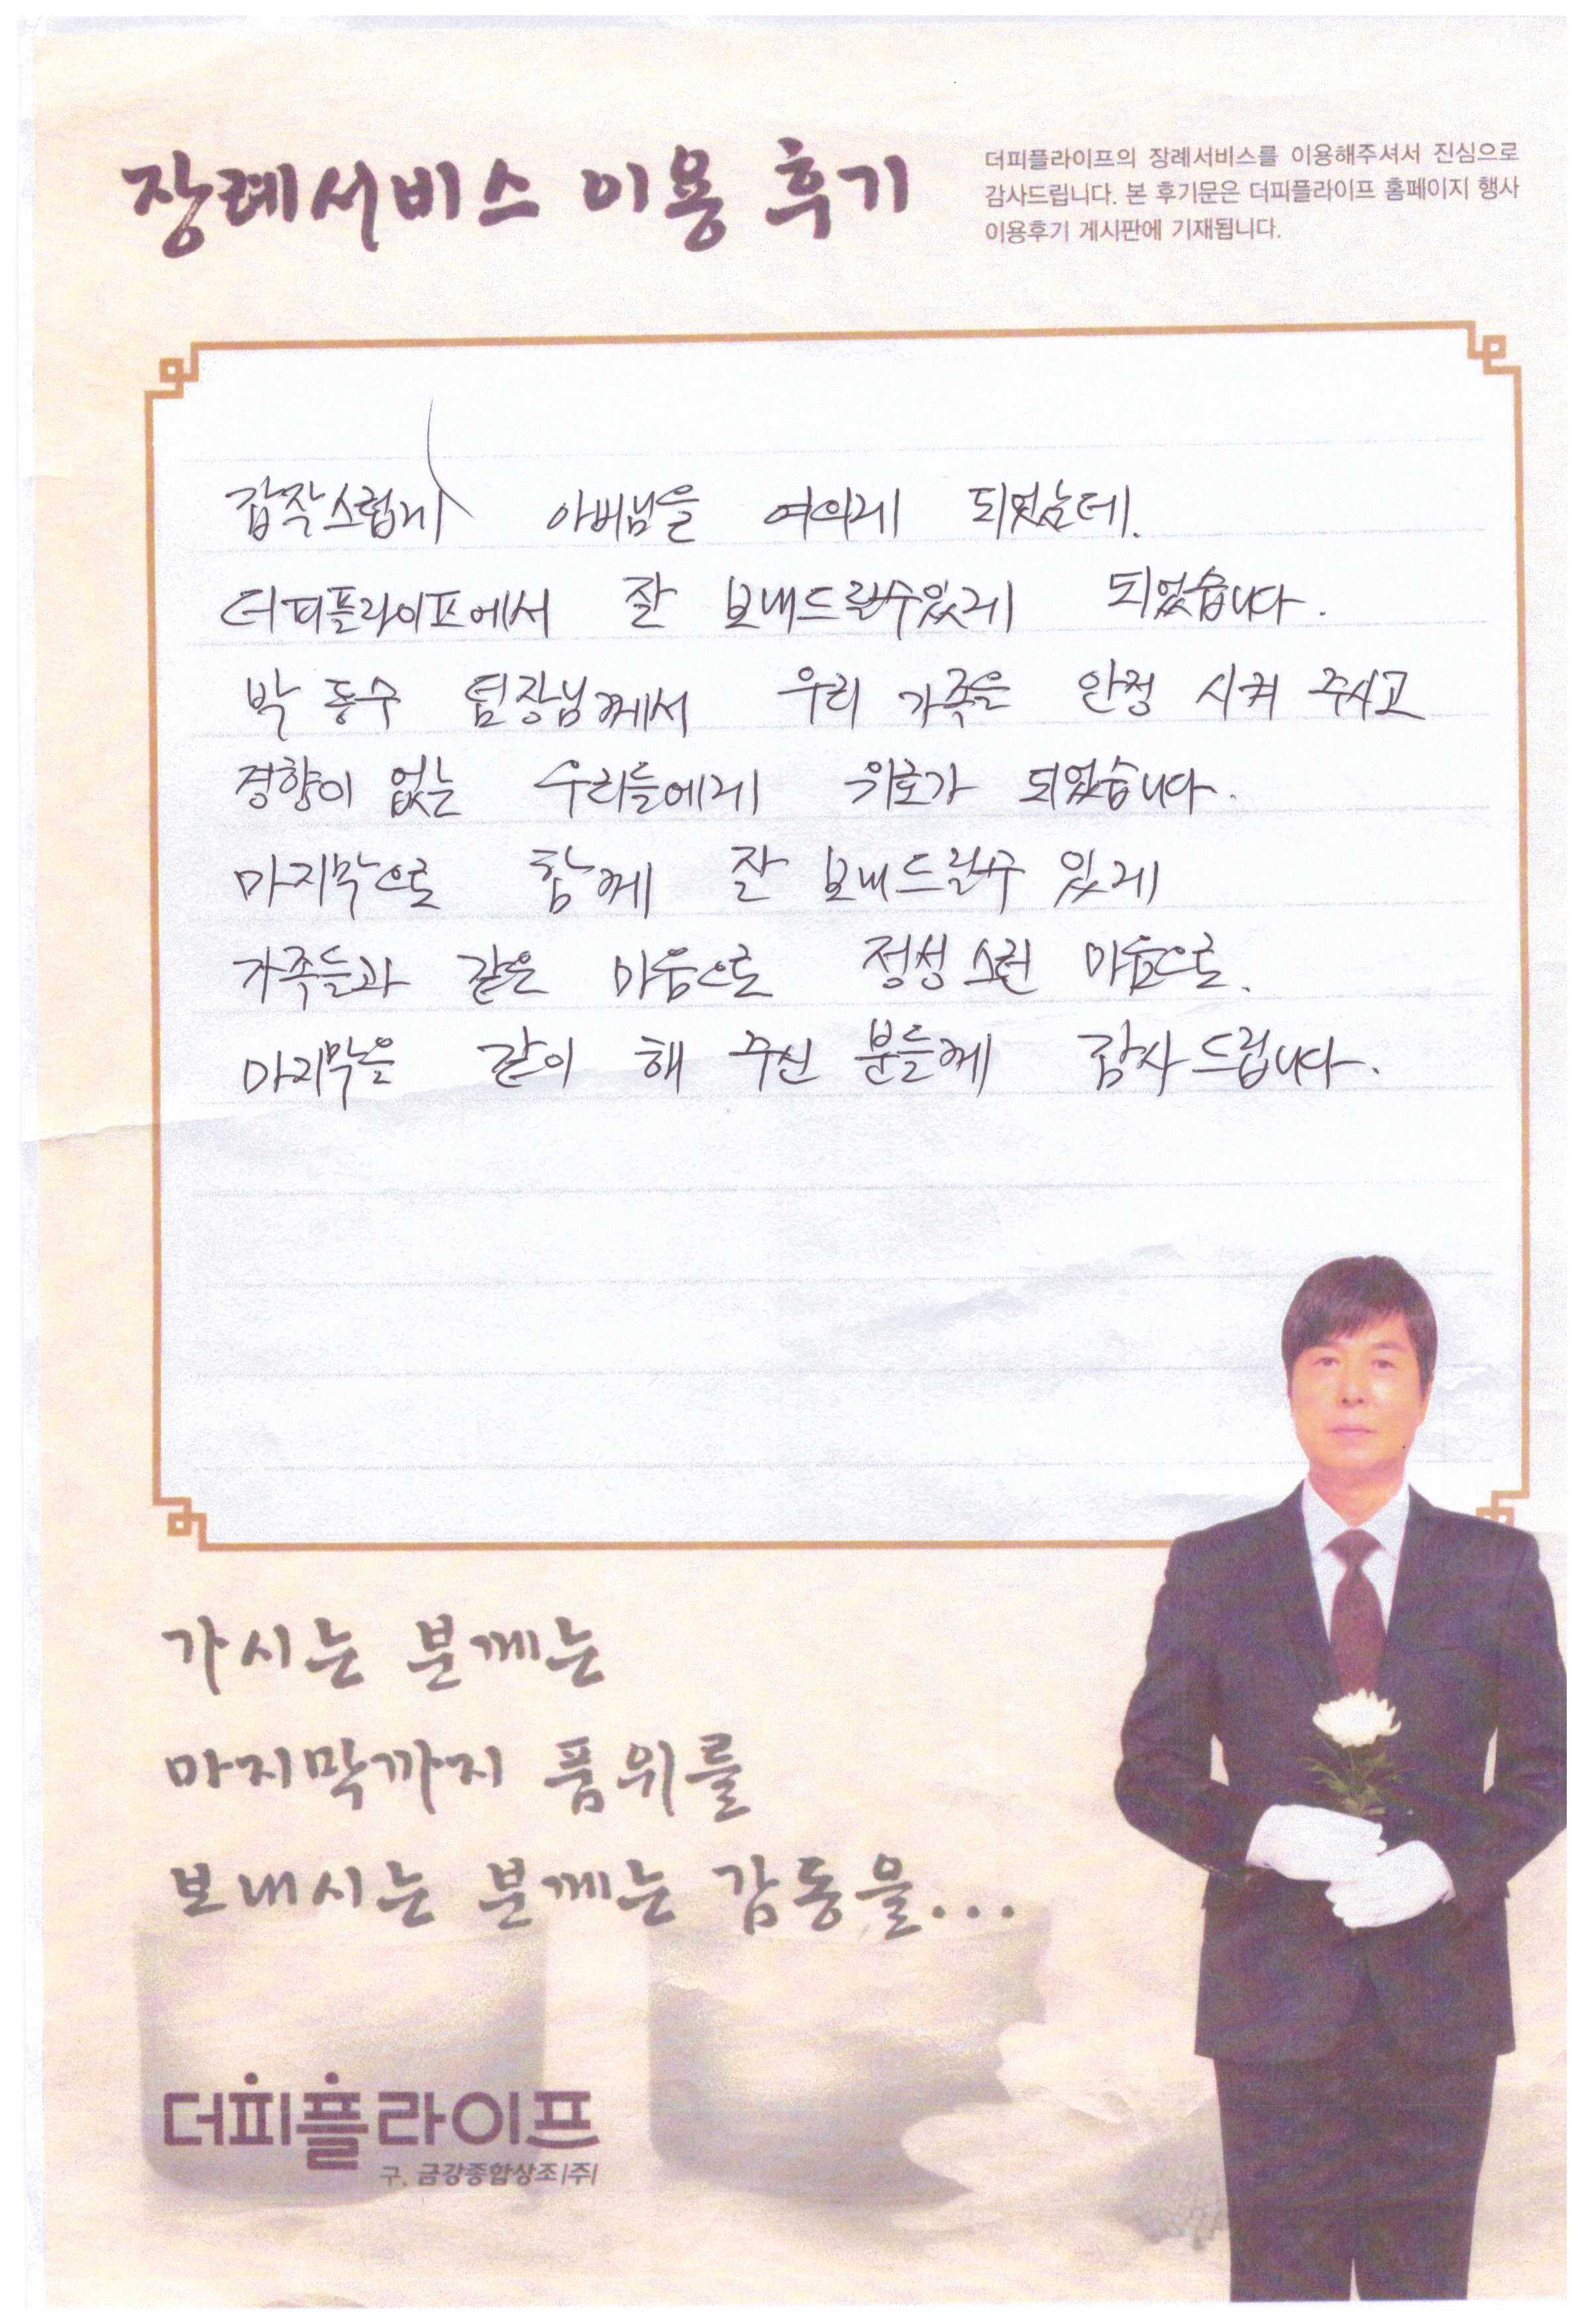 장례서비스 이용 후기
더피플라이프의 장례서비스를 이용해주셔서 진심으로
감사드립니다. 본 후기문은 더피플라이프 홈페이지 행사
이용후기 게시판에 기재됩니다.
갑작스럽게 아버님을 여의게 되었는데.
더피플라이프에서 잘 보내드릴수있게 되었습니다.
박동수 팀장님께서 우리 가족을 안정 시켜 주시고
경향이 없는 우리들에게 위로가 되었습니다.
마지막으로 함께 잘 보내드릴수 있게
가족들과 같은 마음으로 정성스런 마음으로.
마지막을 같이 해 주신 분들께 감사드립니다.
가시는 분께는
마지막까지 품위를
보내시는 분께는 감동을...
더피플라이프
구. 금강종합상조|주|